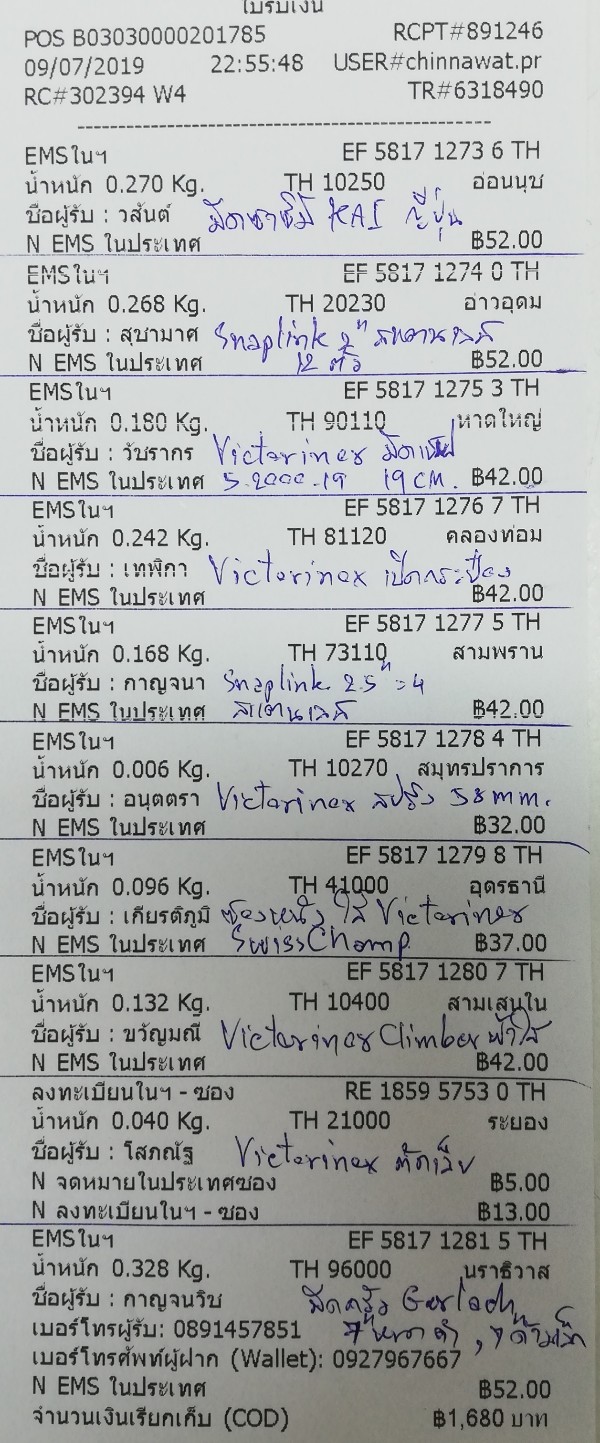 ใบรับเงิน
POS B03030000201785 RCPT#891246
09/07/2019 22:55:48 USER#chinnawat.pr
RC#302394 W4 TR#6318490
EMSในฯ EF 5817 1273 6 TH
น้ำหนัก 0.270 Kg. TH 10250 อ่อนนุช
ชื่อผู้รับ : วสันต์ มีดซาซิมิ KAI ญี่ปุ่น
N EMS ในประเทศ ฿52.00
EMSในฯ EF 5817 1274 0 TH
น้ำหนัก 0.268 Kg. TH 20230 อ่าวอุดม
ชื่อผู้รับ : สุชามาศ Snaplink 2" สแตนเลส
N EMS ในประเทศ 12 ตัว ฿52.00
EMSในฯ EF 5817 1275 3 TH
น้ำหนัก 0.180 Kg. TH 90110 หาดใหญ่
ชื่อผู้รับ : วัชรากร Victorinox มีดเชฟ
N EMS ในประเทศ 5.2000.19 19 cm. ฿42.00
EMSในฯ EF 5817 1276 7 TH
น้ำหนัก 0.242 Kg. TH 81120 คลองท่อม
ชื่อผู้รับ : เทพิกา Victorinox เปิดกระป๋อง
N EMS ในประเทศ ฿42.00
EMSในฯ EF 5817 1277 5 TH
น้ำหนัก 0.168 Kg. TH 73110 สามพราน
ชื่อผู้รับ : กาญจนา Snaplink 2.5" = 4
N EMS ในประเทศ สแตนเลส ฿42.00
EMSในฯ EF 5817 1278 4 TH
น้ำหนัก 0.006 Kg. TH 10270 สมุทรปราการ
ชื่อผู้รับ : อนุตตรา Victorinox สปริง 58 mm.
N EMS ในประเทศ ฿32.00
EMSในฯ EF 5817 1279 8 TH
น้ำหนัก 0.096 Kg. TH 41000 อุดรธานี
ชื่อผู้รับ : เกียรติภูมิ ซองหนัง ใส่ Victorinox
N EMS ในประเทศ SwissChamp ฿37.00
EMSในฯ EF 5817 1280 7 TH
น้ำหนัก 0.132 Kg. TH 10400 สามเสนใน
ชื่อผู้รับ : ขวัญมณี Victorinox Climber ฟ้าใส
N EMS ในประเทศ ฿42.00
ลงทะเบียนในฯ - ซอง RE 1859 5753 0 TH
น้ำหนัก 0.040 Kg. TH 21000 ระยอง
ชื่อผู้รับ : โสภณัฐ Victorinox ตัดเล็บ
N จดหมายในประเทศซอง ฿5.00
N ลงทะเบียนในฯ - ซอง ฿13.00
EMSในฯ EF 5817 1281 5 TH
น้ำหนัก 0.328 Kg. TH 96000 นราธิวาส
ชื่อผู้รับ : กาญจนวิช มีดครัว Gerlach
เบอร์โทรผู้รับ: 0891457851
เบอร์โทรศัพท์ผู้ฝาก (Wallet): 0927967667
N EMS ในประเทศ ฿52.00
จำนวนเงินเรียกเก็บ (COD) ฿1,680 บาท